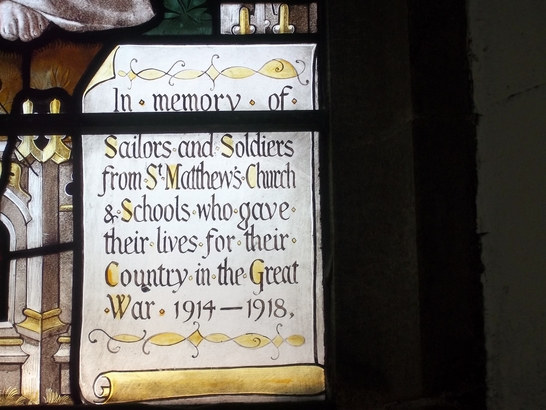 In · memory · of ·
Sailors · and · Soldiers
from · St Matthew's · Church
& · Schools · who · gave ·
their · lives · for · their ·
Country · in · the · Great
· War · 1914 — 1918.